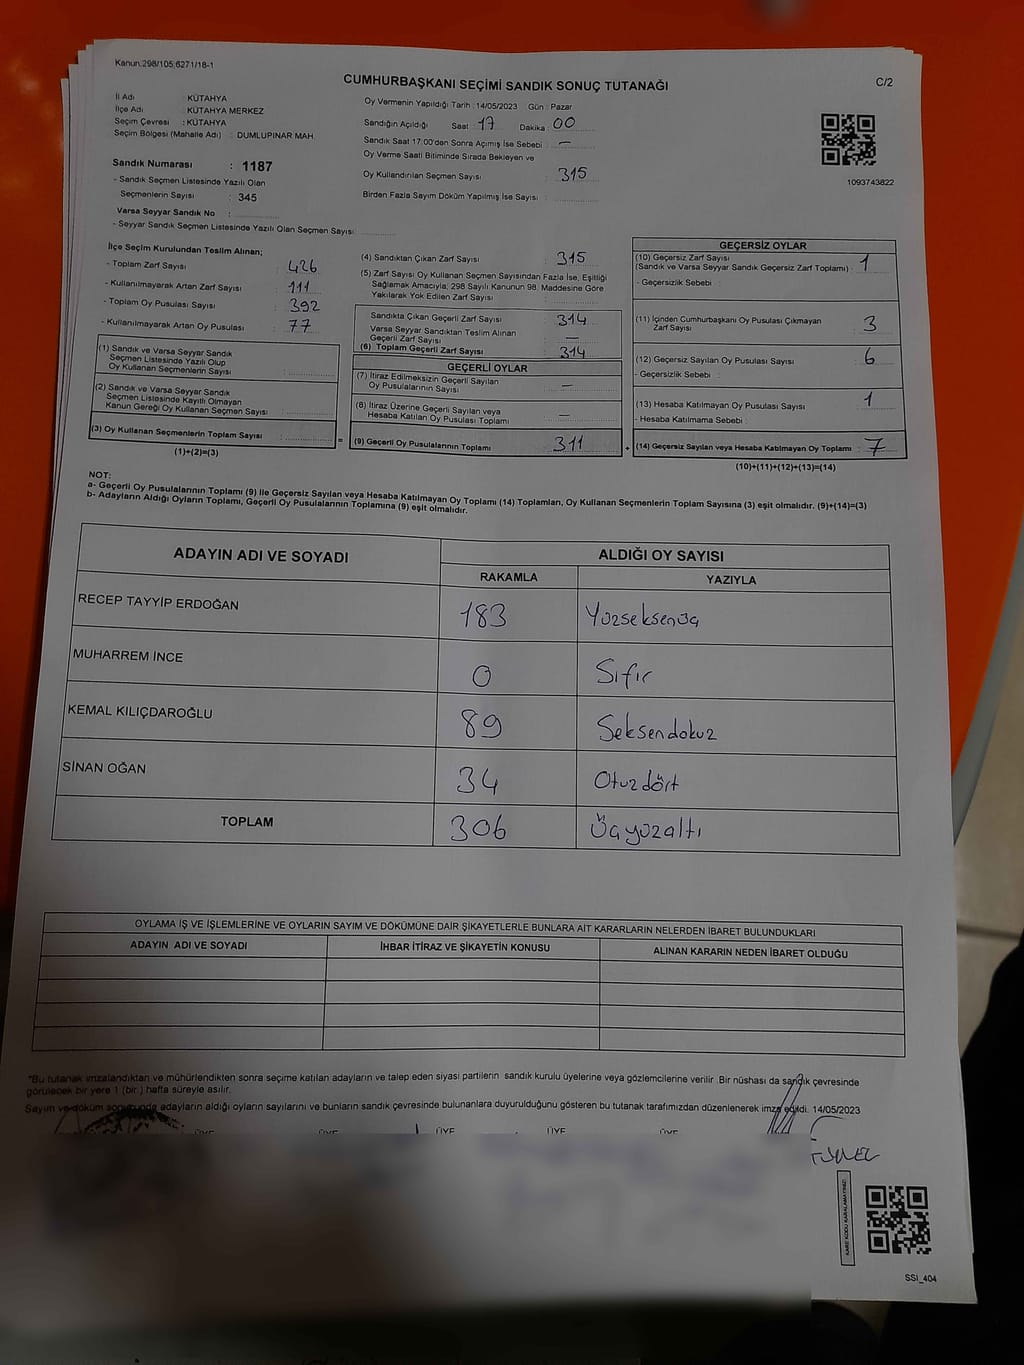 Kanun:298/105;6271/18-1
CUMHURBAŞKANI SEÇİMİ SANDIK SONUÇ TUTANAĞI
C/2
İl Adı : KÜTAHYA
İlçe Adı : KÜTAHYA MERKEZ
Seçim Çevresi : KÜTAHYA
Seçim Bölgesi (Mahalle Adı) : DUMLUPINAR MAH.
Sandık Numarası : 1187
- Sandık Seçmen Listesinde Yazılı Olan
Seçmenlerin Sayısı : 345
Varsa Seyyar Sandık No :
- Seyyar Sandık Seçmen Listesinde Yazılı Olan Seçmen Sayısı :
Oy Vermenin Yapıldığı Tarih : 14/05/2023 Gün : Pazar
Sandığın Açıldığı Saat : 17 Dakika : 00
Sandık Saat 17:00'den Sonra Açımış İse Sebebi : —
Oy Verme Saati Bitiminde Sırada Bekleyen ve
Oy Kullandırılan Seçmen Sayısı : 315
Birden Fazla Sayım Döküm Yapılmış İse Sayısı :
1093743822
İlçe Seçim Kurulundan Teslim Alınan;
- Toplam Zarf Sayısı : 426
- Kullanılmayarak Artan Zarf Sayısı : 111
- Toplam Oy Pusulası Sayısı : 392
- Kullanılmayarak Artan Oy Pusulası : 77
(1) Sandık ve Varsa Seyyar Sandık
Seçmen Listesinde Yazılı Olup
Oy Kullanan Seçmenlerin Sayısı :
(2) Sandık ve Varsa Seyyar Sandık
Seçmen Listesinde Kayıtlı Olmayan
Kanun Gereği Oy Kullanan Seçmen Sayısı :
(3) Oy Kullanan Seçmenlerin Toplam Sayısı : =
(1)+(2)=(3)
(4) Sandıktan Çıkan Zarf Sayısı : 315
(5) Zarf Sayısı Oy Kullanan Seçmen Sayısından Fazla İse, Eşitliği
Sağlamak Amacıyla; 298 Sayılı Kanunun 98. Maddesine Göre
Yakılarak Yok Edilen Zarf Sayısı :
Sandıkta Çıkan Geçerli Zarf Sayısı : 314
Varsa Seyyar Sandıktan Teslim Alınan
Geçerli Zarf Sayısı : —
(6) Toplam Geçerli Zarf Sayısı : 314
GEÇERLİ OYLAR
(7) İtiraz Edilmeksizin Geçerli Sayılan
Oy Pusulalarının Sayısı : —
(8) İtiraz Üzerine Geçerli Sayılan veya
Hesaba Katılan Oy Pusulaları Toplamı : —
(9) Geçerli Oy Pusulalarının Toplamı : 311 +
GEÇERSİZ OYLAR
(10) Geçersiz Zarf Sayısı
(Sandık ve Varsa Seyyar Sandık Geçersiz Zarf Toplamı) : 1
- Geçersizlik Sebebi :
(11) İçinden Cumhurbaşkanı Oy Pusulası Çıkmayan
Zarf Sayısı : 3
(12) Geçersiz Sayılan Oy Pusulası Sayısı : 6
- Geçersizlik Sebebi :
(13) Hesaba Katılmayan Oy Pusulası Sayısı : 1
- Hesaba Katılmama Sebebi :
(14) Geçersiz Sayılan veya Hesaba Katılmayan Oy Toplamı : 7
(10)+(11)+(12)+(13)=(14)
NOT:
a- Geçerli Oy Pusulalarının Toplamı (9) ile Geçersiz Sayılan veya Hesaba Katılmayan Oy Toplamı (14) Toplamları, Oy Kullanan Seçmenlerin Toplam Sayısına (3) eşit olmalıdır. (9)+(14)=(3)
b- Adayların Aldığı Oyların Toplamı, Geçerli Oy Pusulalarının Toplamına (9) eşit olmalıdır.
ADAYIN ADI VE SOYADI ALDIĞI OY SAYISI
RAKAMLA YAZIYLA
RECEP TAYYİP ERDOĞAN 183 Yüzseksenüç
MUHARREM İNCE 0 Sıfır
KEMAL KILIÇDAROĞLU 89 Seksendokuz
SİNAN OĞAN 34 Otuzdört
TOPLAM 306 Üçyüzaltı
OYLAMA İŞ VE İŞLEMLERİNE VE OYLARIN SAYIM VE DÖKÜMÜNE DAİR ŞİKAYETLERLE BUNLARA AİT KARARLARIN NELERDEN İBARET BULUNDUKLARI
ADAYIN ADI VE SOYADI İHBAR İTİRAZ VE ŞİKAYETİN KONUSU ALINAN KARARIN NEDEN İBARET OLDUĞU
*Bu tutanak imzalandıktan ve mühürlendikten sonra seçime katılan adayların ve talep eden siyasi partilerin sandık kurulu üyelerine veya gözlemcilerine verilir. Bir nüshası da sandık çevresinde
görülecek bir yere 1 (bir ) hafta süreyle asılır.
Sayım ve döküm sonucunda adayların aldığı oyların sayılarını ve bunların sandık çevresinde bulunanlara duyurulduğunu gösteren bu tutanak tarafımızdan düzenlenerek imza edildi. 14/05/2023
ÜYE ÜYE ÜYE ÜYE ÜYE
SSİ_404